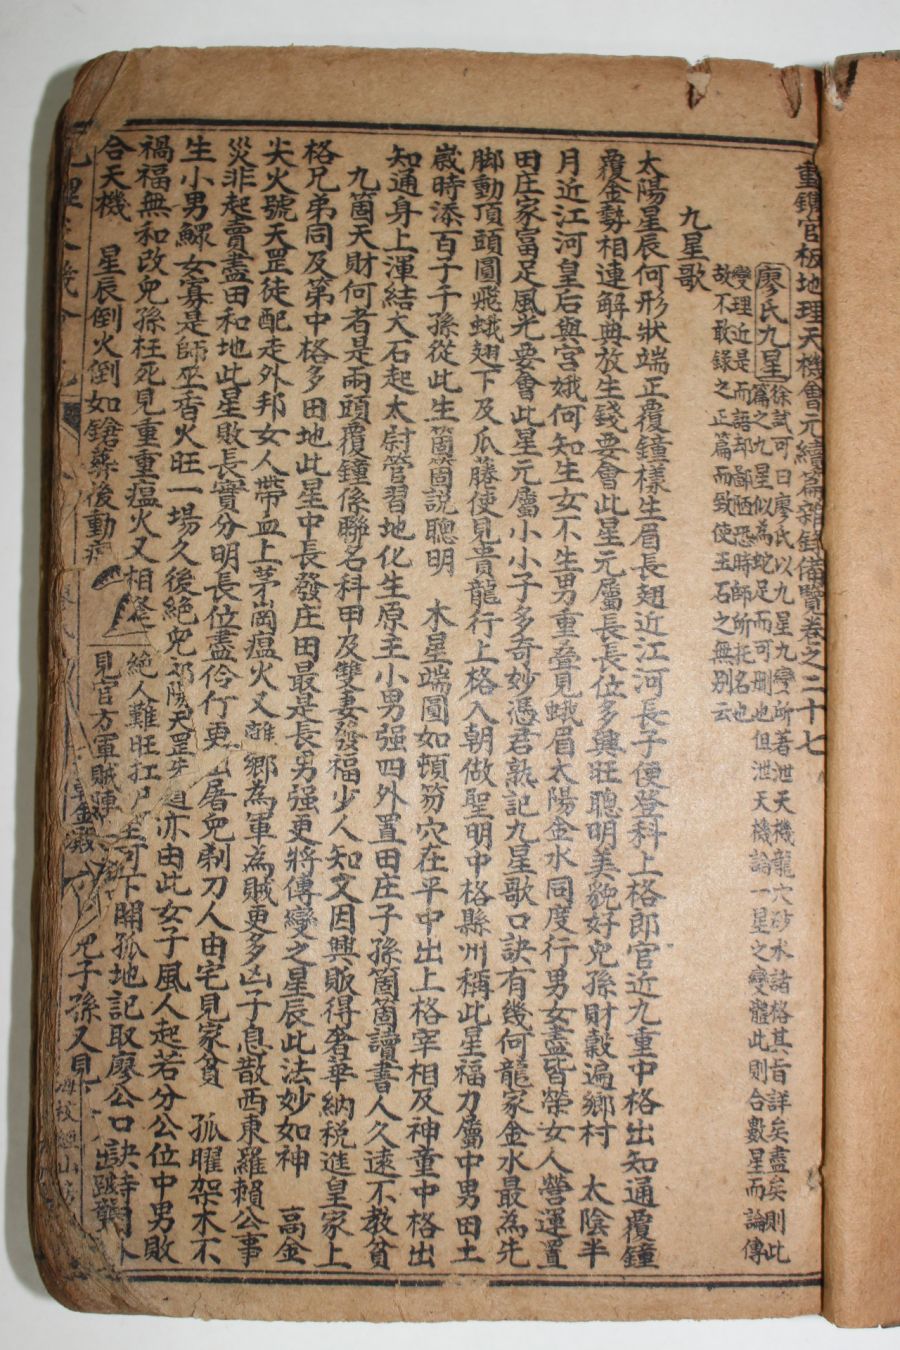 重鐫官板地理天機會元續篇雜錄備覽卷之二十七
廖氏九星
徐試可曰廖氏以九星九變所著泄天機龍穴砂水諸格其旨詳矣盡矣則此
篇之九星似為蛇足而可刪也但泄天機論一星之變體此則合數星而論傳
變理近是而語却鄙陋恐時師所托名也
故不敢錄之正篇而致使玉石之無別云
九星歌
太陽星辰何形狀端正覆鐘樣生眉長翅近江河長子便登科上格郎官近九重中格出知通覆鐘
覆金勢相連解典放生錢要會此星元屬長長位多興旺聰明美貌好兒孫財穀遍鄉村 太陰半
月近江河皇后與宮娥何知生女不生男重叠見蛾眉太陽金水同度行男女盡皆榮女人營運置
田庄家富足風光要會此星元屬小小子多奇妙憑君熟記九星歌口訣有幾何龍家金水最為先
脚動頂頭圓飛蛾翅下及瓜藤便見貴龍行上格入朝做聖明中格縣州稱此星福力屬中男田土
歲時添百子千孫從此生箇箇說聰明 木星端圓如頓笏穴在平中出上格宰相及神童中格出
知通身上渾結大石起太尉營習地化生原主小男强四外置田庄子孫箇箇讀書人久遠不教貧
九箇天財何者是兩頭覆鐘係聯名科甲及雙妻發福少人知又因興販得奢華納税進皇家上
格兄弟同及第中格多田地此星中長發庄田最是長男强更將傳變之星辰此法妙如神 高金
尖火號天罡徒配走外邦女人帶血上茅崗瘟火又離鄉為軍為賊更多凶子息散西東羅賴公事
災非起賣盡田和地此星敗長實分明長位盡伶仃更出屠兒剃刀人由宅見家貧 孤曜架木不
生小男鰥女寡是師巫香火旺一場久後絕兒郎陽天罡 亦由此女子風人起若分公位中男敗
禍福無和改兒孫枉死見重重瘟火又相逢 絕人難旺扛尸 可下開孤地記取廖公口訣詩
合天機 星辰倒火倒如鎗葬後動瘟 見官方軍賊陣 兒子孫又見